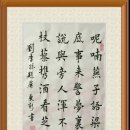 呢喃燕子語梁
底事來驚夢裏
說與旁人渾不
杖藜攜酒看芝
劉季孫題屏